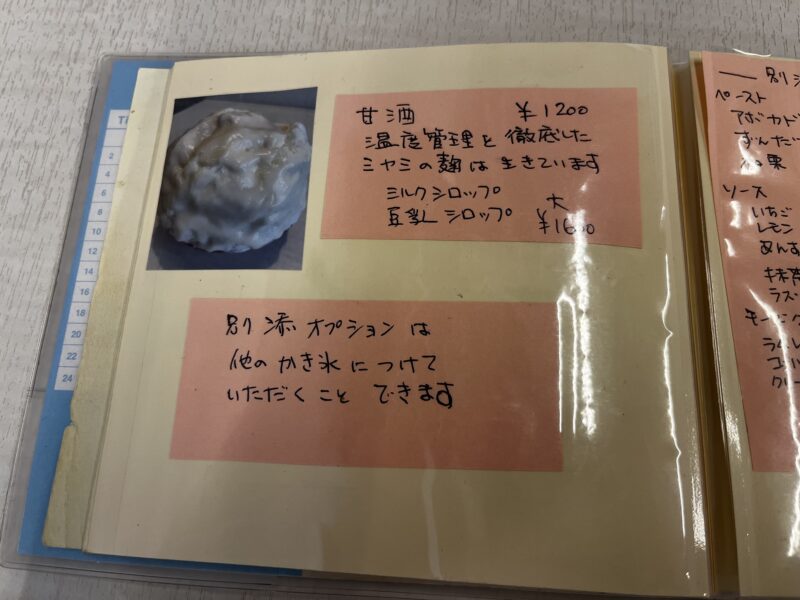 甘酒 ¥1200
温度管理を徹底した
ミヤミの麹は生きています
ミルクシロップ
豆乳シロップ 大
¥1600
別添オプションは
他のかき氷につけて
いただくこと できます
別添
ペースト
アボカド
ずんだ
ソース
いちご
レモン
あんず
2
4
6
8
10
12
14
16
18
20
22
24